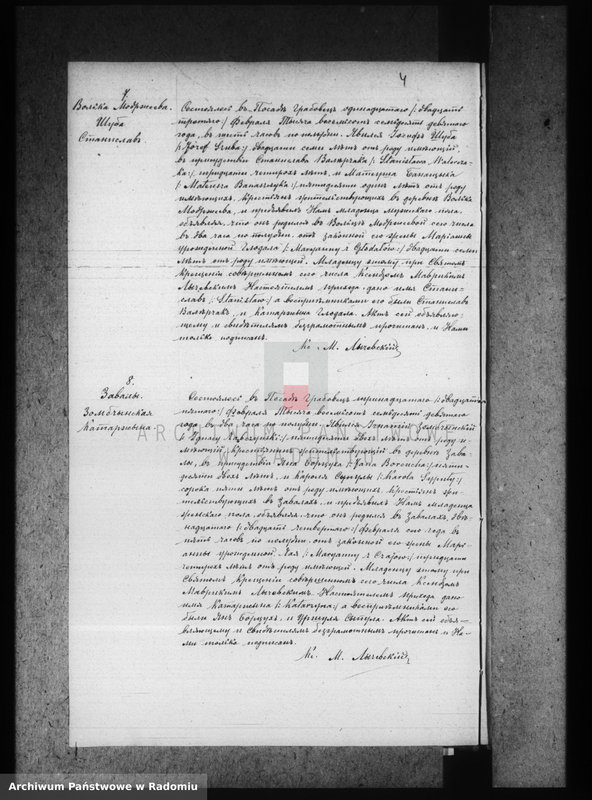 4
7
Волька Модржева.
Шуба
Станиславъ
Состоялось въ Посадѣ Грабовецъ одинадцатаго /: двадцать
третьяго :/ Февраля Тысяча восемьсотъ семьдесятъ девятаго
года, въ шесть часовъ по полудни. Явился Іозефъ Шуба
/: Józef Szuba :/ двадцати семи лѣтъ отъ роду имѣющій,
въ присутствіи Станислава Валѣрчака /: Stanisława
ка :/ тридцати четырехъ лѣтъ, и Матеуша
/: Mateusza :/ пятидесяти одинъ лѣтъ отъ роду
имѣющихъ, крестьянъ жительствующихъ въ деревнѣ Волька
Модржева, и предъявилъ Намъ младенца мужескаго пола,
объявляя, что онъ родился въ Волькѣ Модржевой сего числа
въ два часа по полудни, отъ законной его жены Маріанны
урожденной Глодала /: Maryanny z Głodałów :/ двадцати семи
лѣтъ отъ роду имѣющей. Младенцу этому при Святомъ
крещеніи совершенномъ сего числа Ксендзомъ Маврикіемъ
Лычевскимъ Настоятелемъ прихода дано имя Стани-
славъ /: Stanisław :/ а воспріемниками его были Станиславъ
Валѣрчакъ, и Катаржина Глодала. Актъ сей объявляю-
щему и свидѣтелямъ безграмотнымъ прочитанъ, и Нами
только подписанъ.
Кс. М. Лычевскій
8.
Завалы.
Катаржина
Состоялось въ Посадѣ Грабовецъ тринадцатаго /: двадцать
пятаго :/ Февраля Тысяча восемьсотъ семьдесятъ девятаго
года, въ два часа по полудни. Явился Игнатій
/: Ignacy :/ пятидесяти двухъ лѣтъ отъ роду и-
мѣющій крестьянинъ жительствующій въ деревнѣ Зава-
лы, въ присутствіи Яна Борцуха /: Jana Borcucha :/ пяти-
десяти двухъ лѣтъ, и Кароля Сыпулы /: Karola Sypuły :/
сорока пяти лѣтъ отъ роду имѣющихъ, крестьянъ жи-
тельствующихъ въ Завалахъ, и предъявилъ Намъ младенца
женскаго пола, объявляя, что онъ родился въ Завалахъ, двѣ-
надцатаго /: двадцать четвертаго :/ Февраля сего года въ
пять часовъ по полудни, отъ законной его жены Марі-
анны урожденной /: Maryanny z :/ тридцати
четырехъ лѣтъ отъ роду имѣющей. Младенцу этому при
Святомъ Крещеніи совершенномъ сего числа Ксендзомъ
Маврикіемъ Лычевскимъ Настоятелемъ прихода дано
имя Катаржина /: Katarzyna :/ а воспріемниками его
были Янъ Борцухъ, и Сыпула. Актъ сей объя-
вляющему и свидѣтелямъ безграмотнымъ прочитанъ и На-
ми только подписанъ.
Кс. М. Лычевскій
ARCHIWUM PAŃSTWOWE
W RADOMIU
Archiwum Państwowe w Radomiu